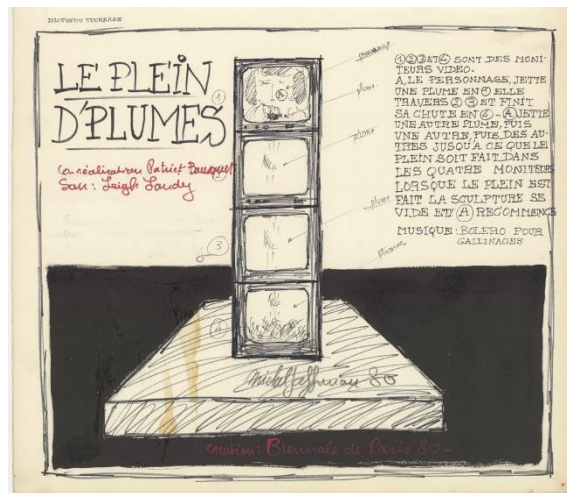 PHOTOS DU TOURNAGE
LE PLEIN
D'PLUMES
co-réalisation Patrick Bousquet
Son : Leigh Landy
①②③ET④ SONT DES MONI-
TEURS VIDEO-
A, LE PERSONNAGE, JETTE
UNE PLUME EN ① ELLE
TRAVERS ②③ ET FINIT
SA CHUTE EN ④ - Ⓐ JETTE
UNE AUTRE PLUME, PUIS
UNE AUTRE, PUIS DES AU-
TRES JUSQU'A CE QUE LE
PLEIN SOIT FAIT DANS
LES QUATRE MONITEURS
LORSQUE LE PLEIN EST
FAIT LA SCULPTURE SE
VIDE ET Ⓐ RECOMMENCE
MUSIQUE : BOLERO POUR
GALLINACES
personnage
plume
plume
plume
plumes
1
A
3
4
Michel Jaffrennou 80
création : Biennale de Paris 80-